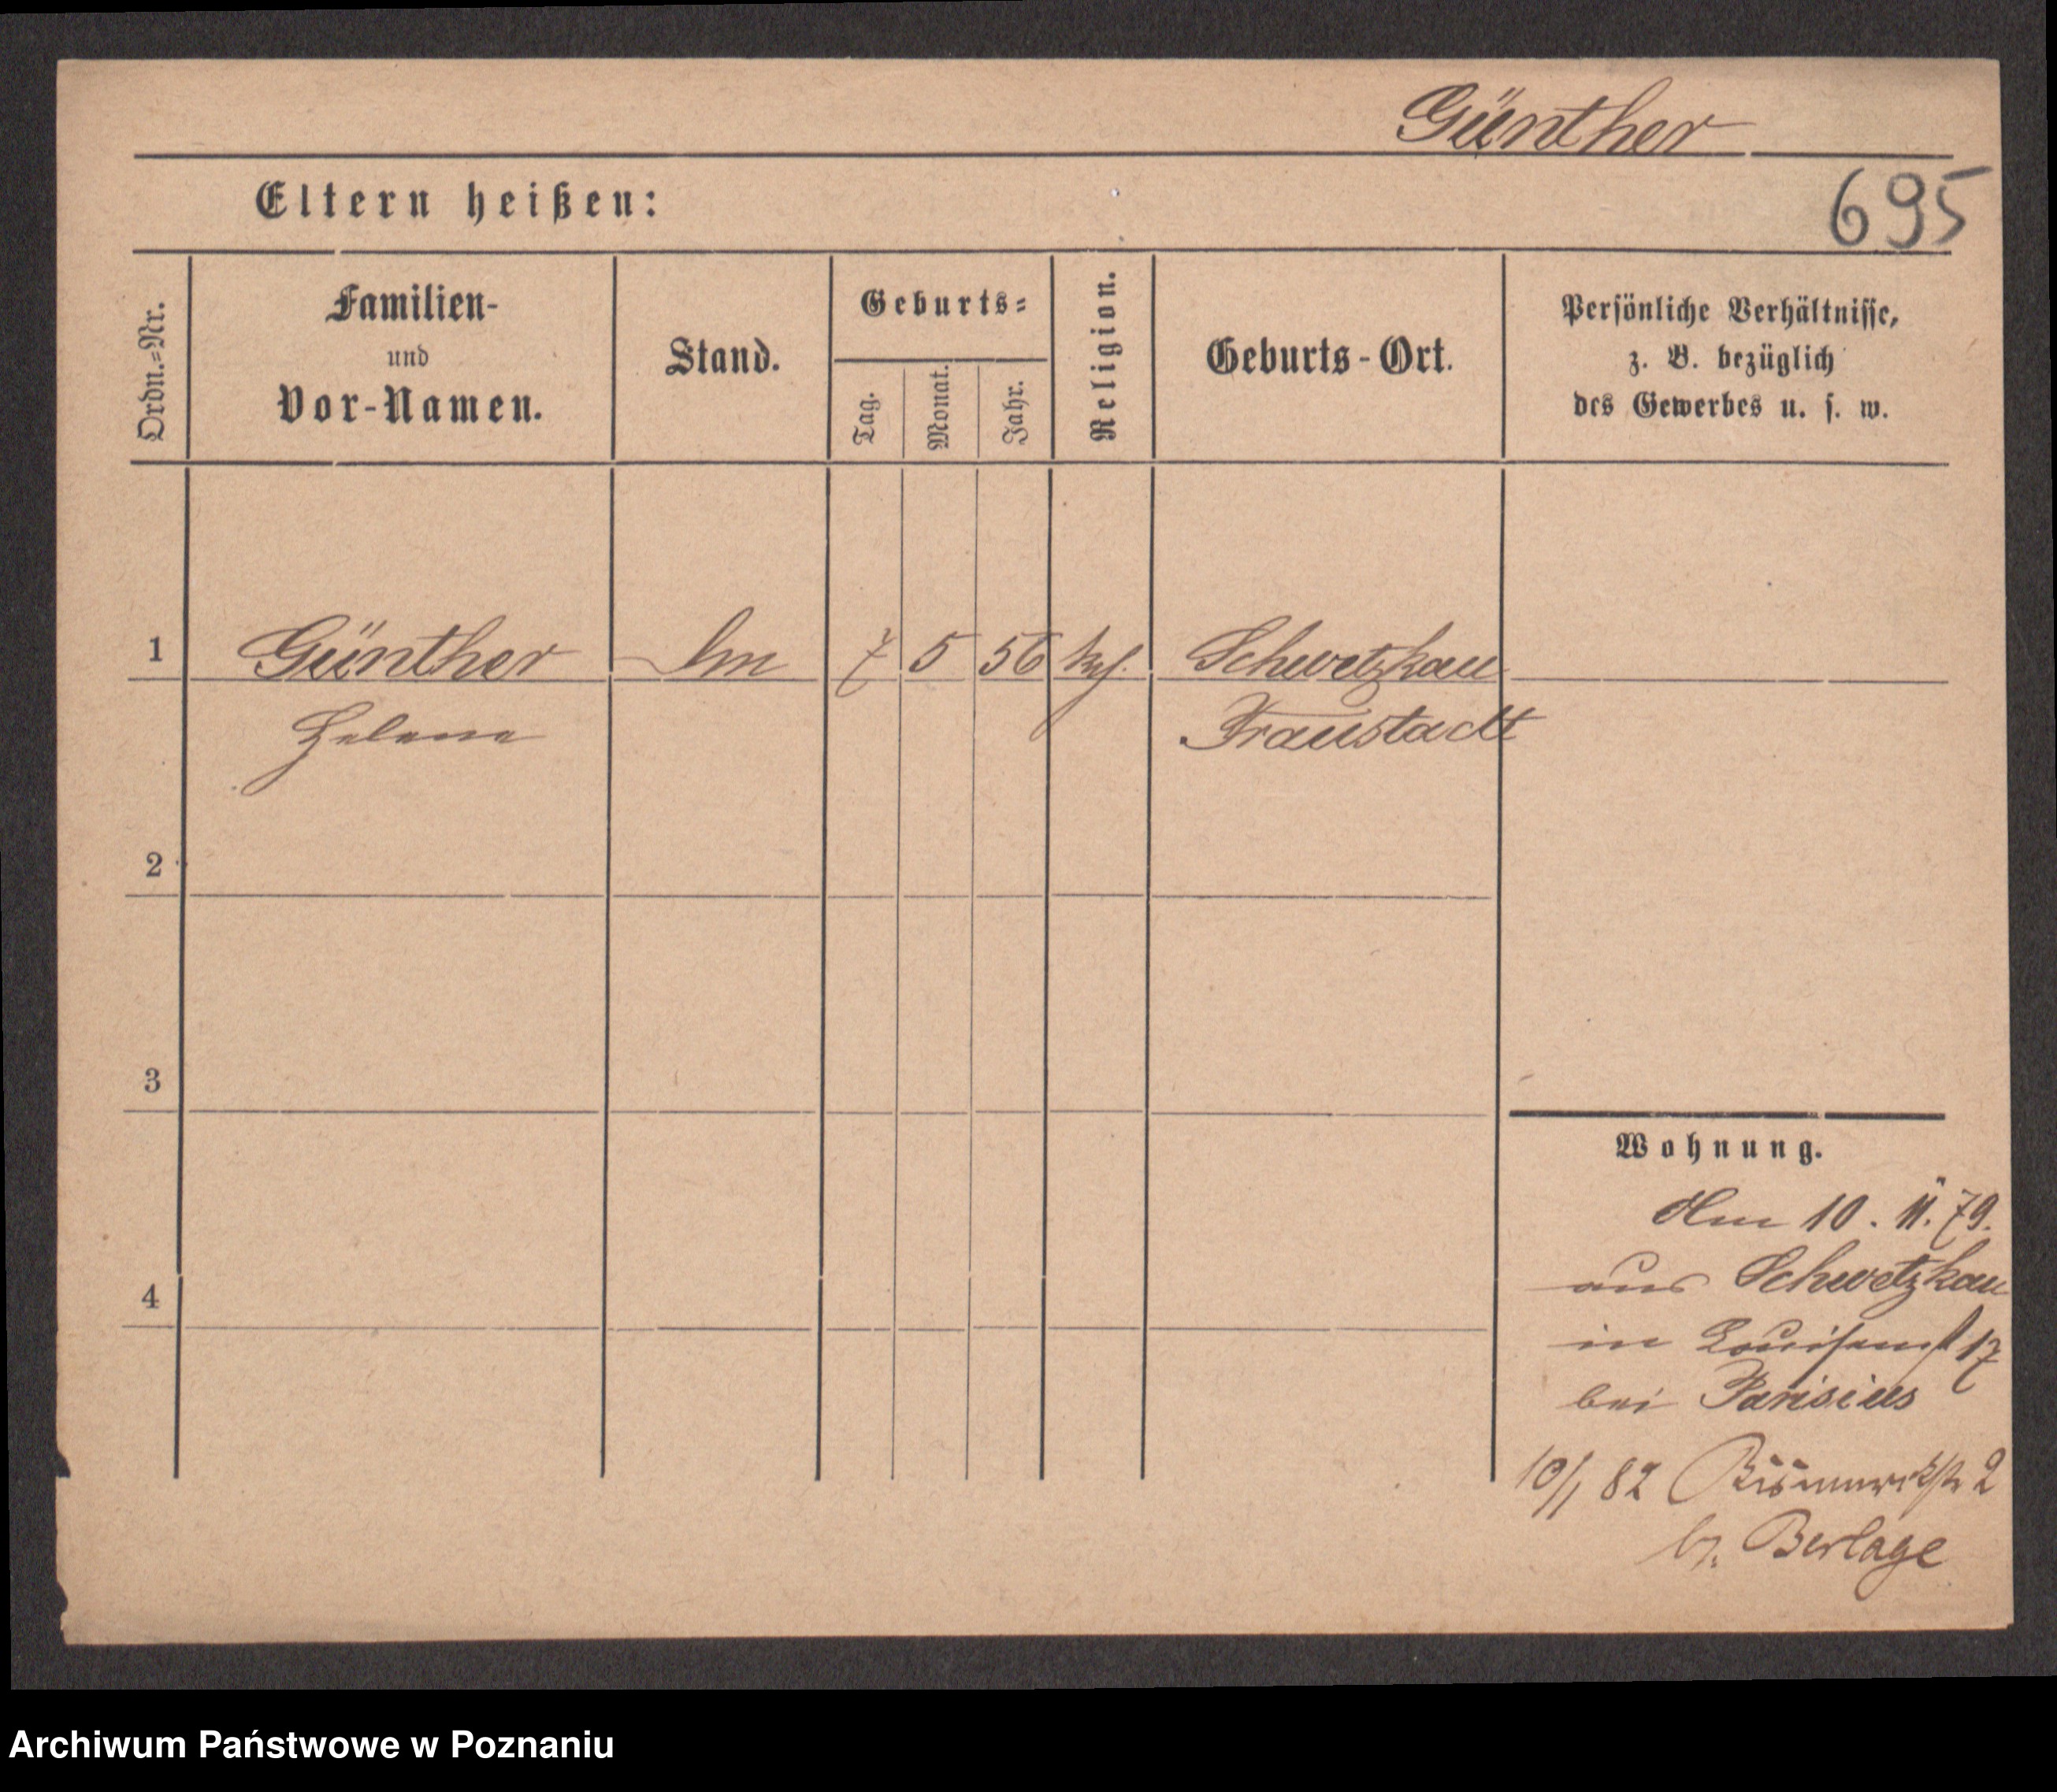 Günther
695
Eltern heißen:
Ordn.=Nr.
Familien- und Vor-Namen.
Stand.
Geburts=
Tag.
Monat.
Jahr.
Religion.
Geburts-Ort.
Persönliche Verhältnisse,
z. B. bezüglich
des Gewerbes u. s. w.
1 Günther 7 5 56 Schwetzkau
Helene Fraustadt
2
3
4
Wohnung.
Am 10. 11. 79.
aus Schwetzkau
in Louisenst 17
bei Parisius
10/1 82 Bismarckstr 2
b. Berlage
Archiwum Państwowe w Poznaniu